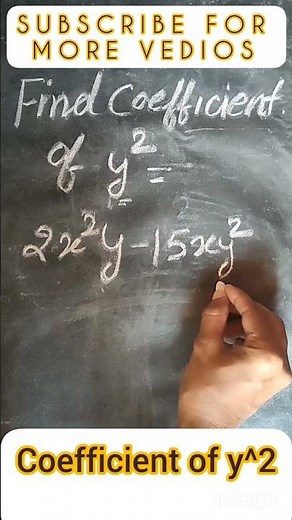 SUBSCRIBE FOR
MORE VEDIOS
Find Coefficient
of y² =
2x²y - 15xy²
Coefficient of y^2